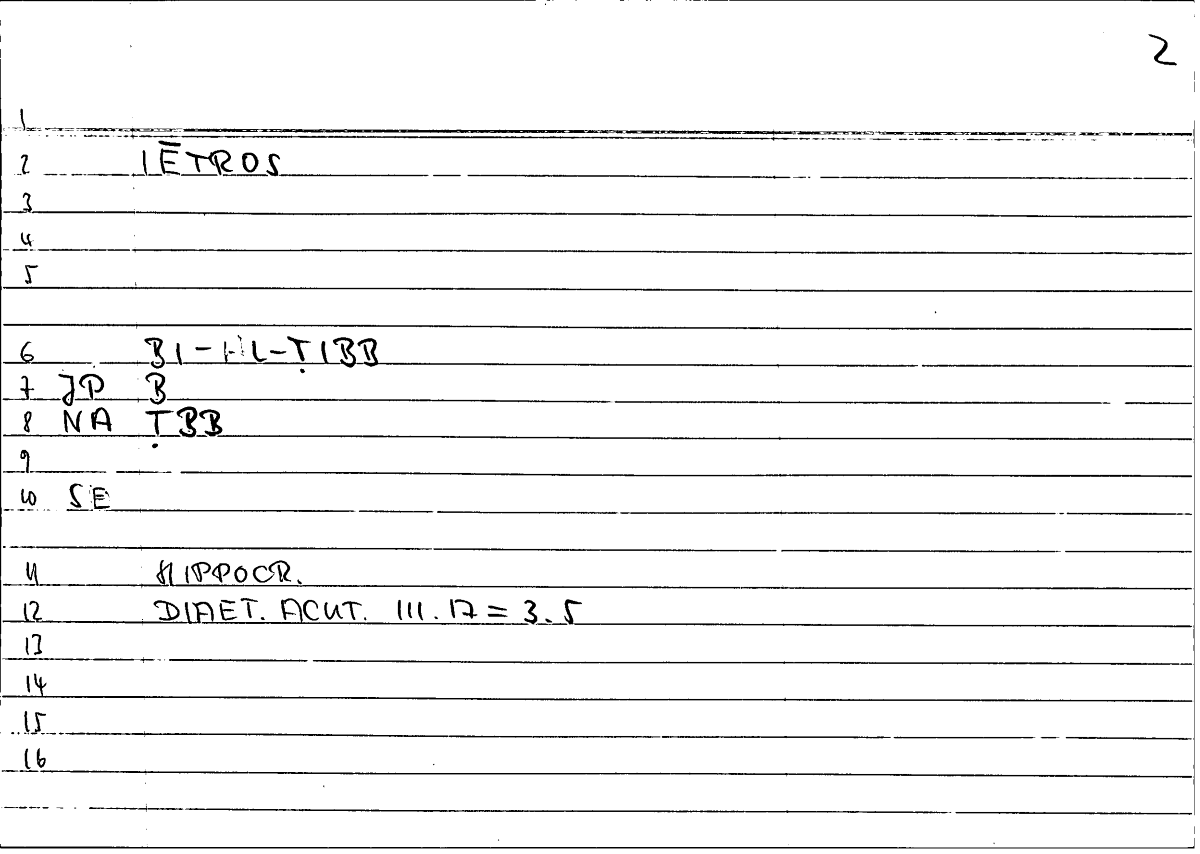 2
1
2 IĒTROS
3
4
5
6 BI-HL-ṬIBB
7 JP B
8 NA ṬBB
9
10 SE
11 HIPPOCR.
12 DIAET. ACUT. III.17 = 3.5
13
14
15
16